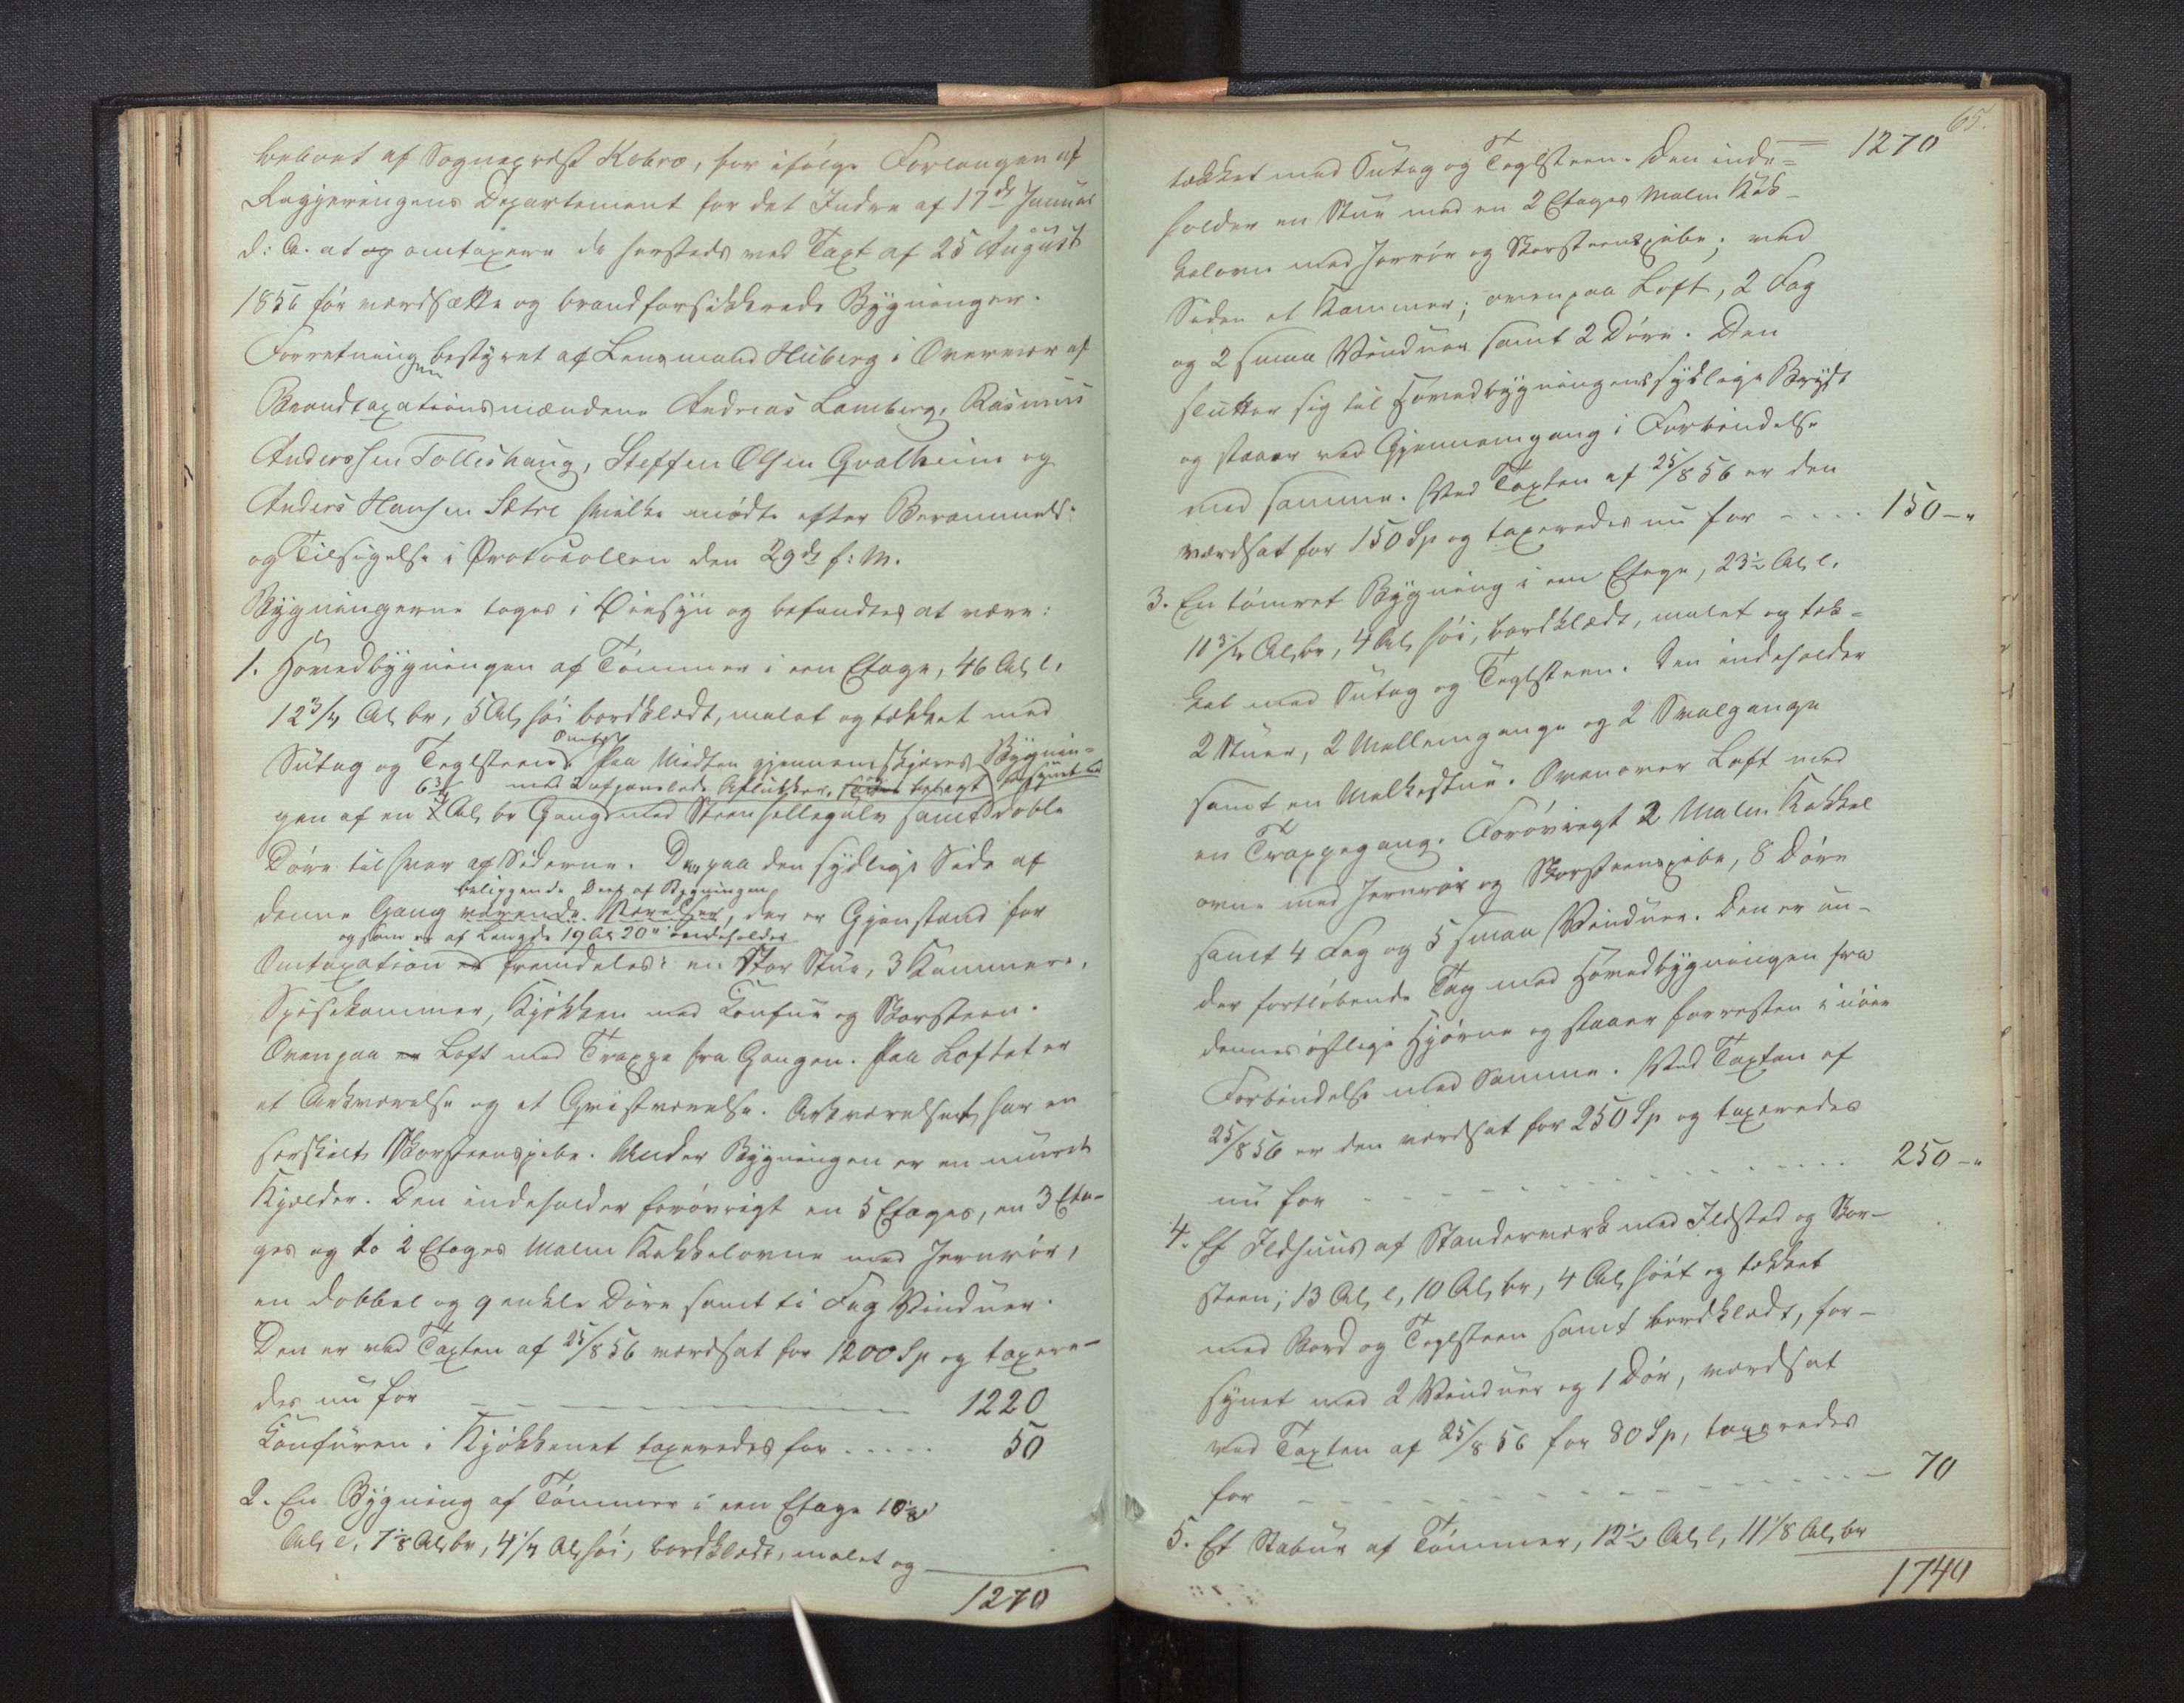 beboet af Sogneprest Kobro, for ifølge Forlangen af
Regjeringens Departement for det Indre af 17de Januar
d: A. at op omtaxere de hersteds ved Taxt af 25 August
1856 før værdsatte og brandforsikkrede Bygninger.
Forretningen bestyret af Lensmand Hiiberg i Overvær af
Brandtaxationsmændene Andreas Lamberg, Rasmus
Anderssen Tolleshaug, Steffen Olsen Qvalheim og
Anders Hansen Sætre hvilke mødte efter Berammelse
og Tilsigelse i Protocollen den 29de f: M.
Bygningerne toges i Øiesyn og befandtes at være:
1. Hovedbygningen af Tømmer i een Etage, 46 Al l.
12 3/4 Al br, 5 Al høi bordklædt, malet og tækket med
Sutag og Teglsteen. Paa Midten gjennemskjæres Bygnin=
6 3/4 med 2 afpanelede Aflukker
gen af en Al br Gang med Steenhellegulv samt doble
Døre til hver af Siderne. Den paa den sydlige Side af
beliggende Deel af Bygningen
denne Gang værende Værelser, der er Gjenstand for
og som er af Længde 19 Al 20" indeholder
Omtaxation er fremdeles: en Stor Stue, 3 Kammere,
Spisekammer, Kjøkken med Komfur og Skorsteen.
Ovenpaa er Loft med Trappe fra Gangen. Paa Loftet er
et Arkværelse og et Qvistværelse. Arkværelset har en
særskilt Skorsteenspibe. Under Bygningen er en muret
Kjælder. Den indeholder forøvrigt en 5 Etages, en 3 Eta-
ges og to 2 Etages Malm Kakkelovne med Jernrør,
en dobbel og 9 enkle Døre samt ti Fag Vinduer.
Den er ved Taxten af 25/8 56 værdsat for 1200 Sp og taxere-
des nu for 1220
Komfuren i Kjøkkenet taxeredes for ..... 50
2. En Bygning af Tømmer i een Etage 10 1/2
Al l, 7 1/8 Al br, 4 1/4 Al høi, bordklædt, malet og
1270
65.
1270
tækket med Sutag og Teglsteen. Den inde=
holder en Stue med en 2 Etages Malm Kak-
kelovn med Jernrør og Skorsteenspibe; ved
Siden et Kammer; ovenpaa Loft, 2 Fag
og 2 smaa Vinduer samt 2 Døre. Den
slutter sig til Hovedbygningens sydlige
og staaer ved Gjennemgang i Forbindelse
med samme. Ved Taxten af 25/8 56 er den
værdsat for 150 Sp og taxeredes nu for - ... 150-"
3. En tømret Bygning i een Etage, 23 1/2 Al l.
11 3/4 Al br, 4 Al høi, bordklædt, malet og tæk=
ket med Sutag og Teglsteen. Den indeholder
2 Stuer, 2 Mellemgange og 2 Svalgange
samt en Melkestue. Ovenover Loft med
en Trappegang. Forøvrigt 2 Malm Kakkel
ovne med Jernrør og Skorsteenspibe, 8 Døre
samt 4 Fag og 5 smaa Vinduer. Den er un-
der fortløbende Tag med Hovedbygningen fra
dennes østlige Hjørne og staaer forresten i nøie
Forbindelse med samme. Ved Taxten af
25/8 56 er den værdsat for 250 Sp og taxeredes
nu for 250-"
4. Et Ildhuus af Standerværk med Ildsted og Skor-
steen, 13 Al l, 10 Al br, 4 Al høit og tækket
med Bord og Teglsteen samt bordklædt, for-
synet med 2 Vinduer og 1 Dør, værdsat
ved Taxten af 25/8 56 for 80 Sp, taxeredes
for 70
5. Et Stabur af Tømmer, 12 1/2 Al l, 11 1/8 Al br
1740